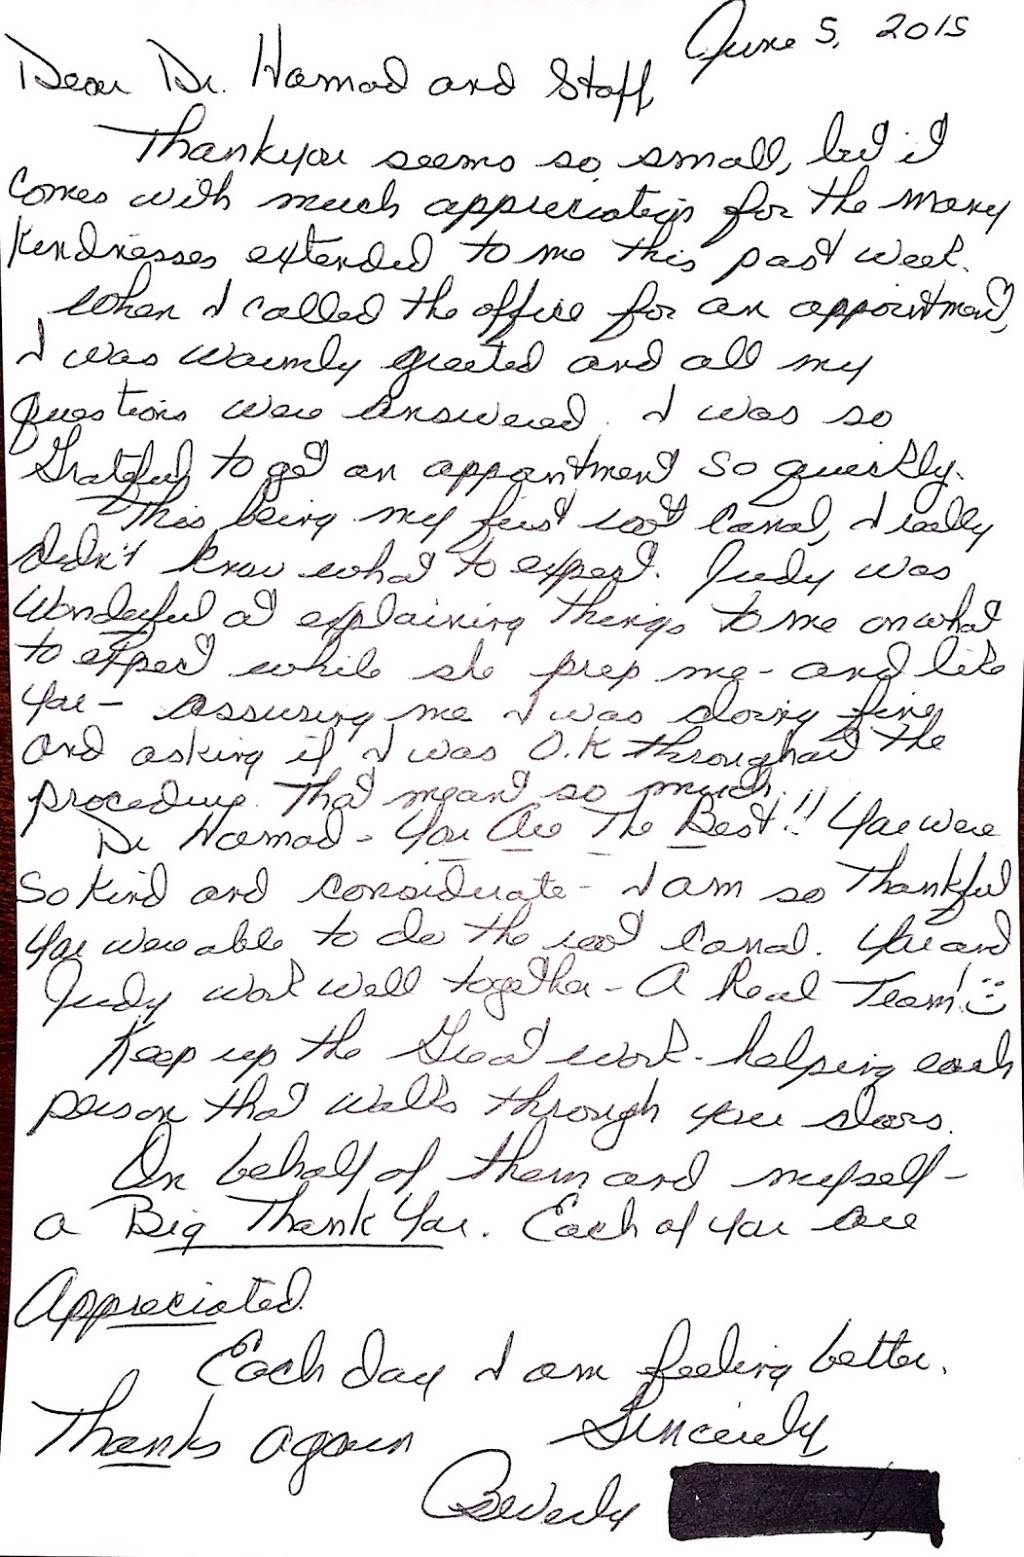 June 5, 2015
Dear Dr. Hamad and Staff,
Thankyou seems so small, but it
comes with much appreciation for the many
kindnesses extended to me this past week.
When I called the office for an appointment,
I was warmly greeted and all my
questions were answered. I was so
Grateful to get an appointment so quickly.
This being my first root canal, I really
didn't know what to expect. Judy was
wonderful at explaining things to me on what
to expect while she prep me - and like
you - assuring me I was doing fine
and asking if I was O.K throughout the
procedure. That meant so much.
Dr Hamad - You Are The Best!! You were
so kind and considerate - I am so Thankful
you were able to do the root canal. You and
Judy work well together - A Real Team!
Keep up the Great work - helping each
person that walks through your doors.
On behalf of them and myself -
a Big Thank You. Each of you are
Appreciated.
Each day I am feeling better.
Thanks again Sincerely
Beverly